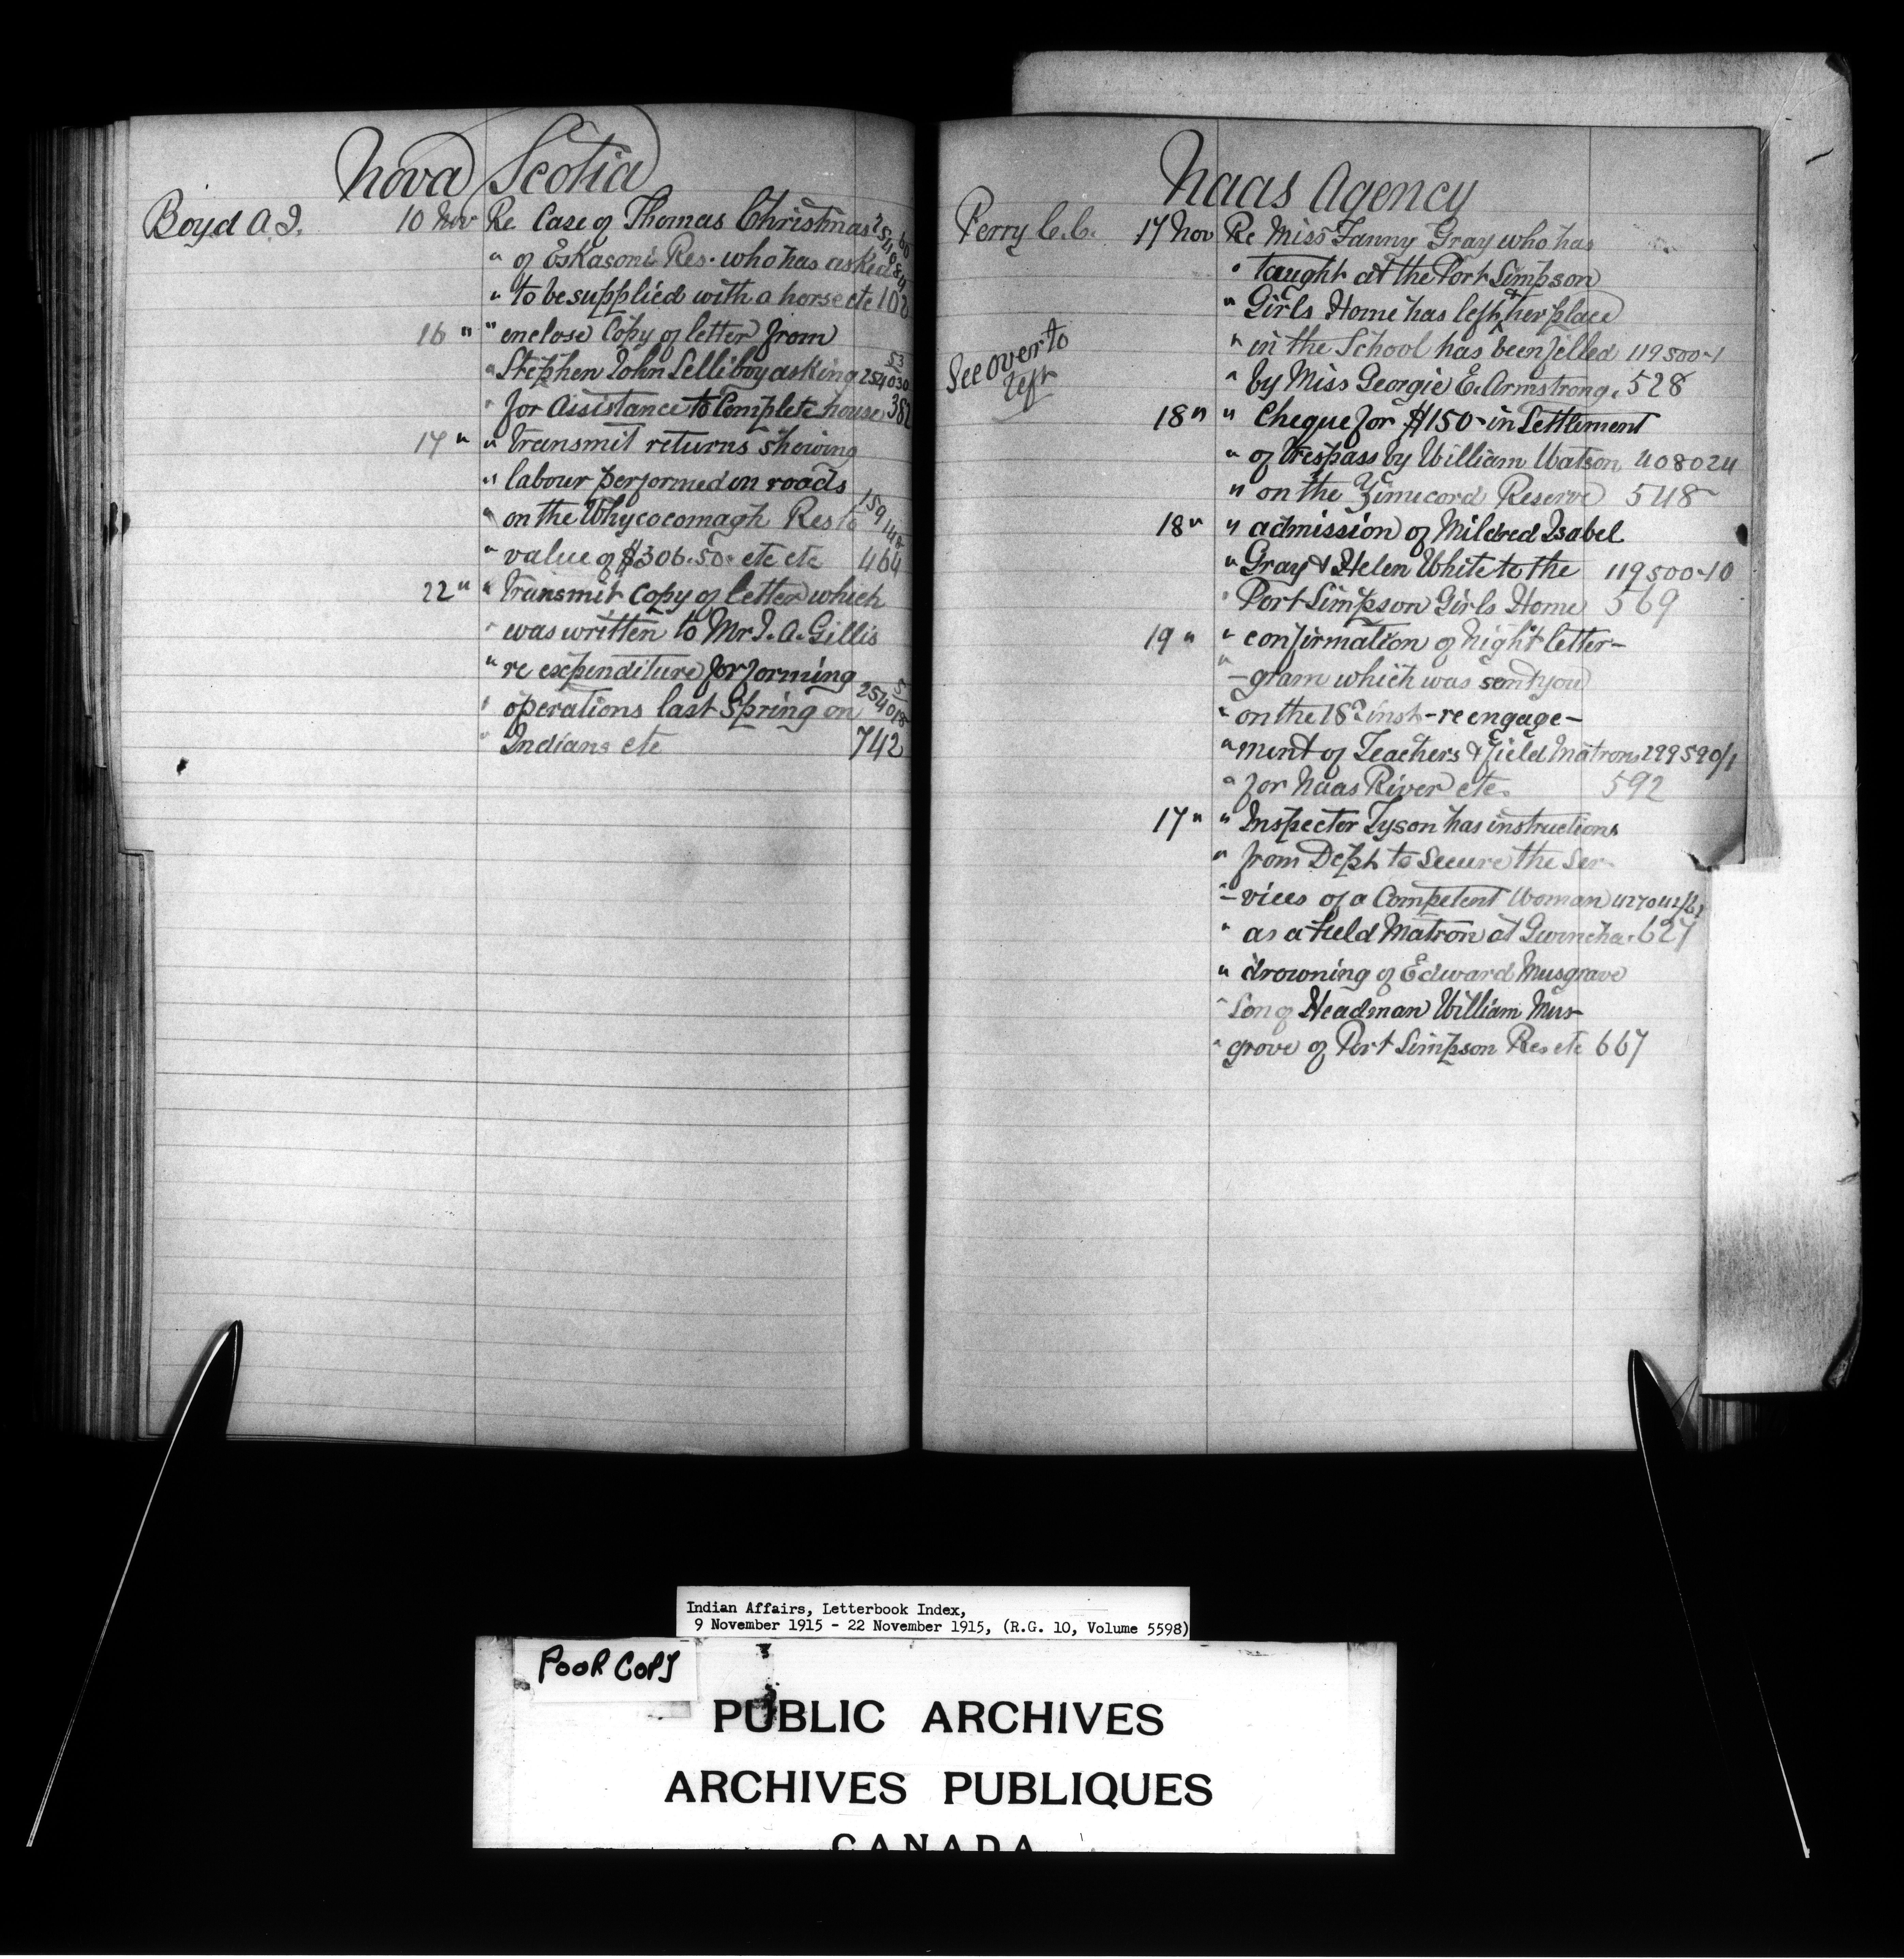 Nova Scotia
Boyd A. J. 10 Nov Re Case of Thomas Christmas
" of Eskasoni Res. who has asked
" to be supplied with a horse etc 102
16 " " enclose Copy of letter from
" Stephen John Selliboy asking 254030 53
" for Assistance to Complete house 382
17 " " transmit returns showing
" labour performed on roads
" on the Whycocomagh Res to 159148
" value of $306.50 etc etc 464
22 " " transmit copy of letter which
" was written to Mr J. A. Gillis
" re expenditure for forming
" operations last Spring on 254018 5
" Indians etc 742
Naas Agency
Perry C. C. 17 Nov Re Miss Fanny Gray who has
" taught at the Port Simpson
" Girls Home has left & her place
" in the School has been filled 119500-1
" by Miss Georgie E. Armstrong. 528
See over to
left
18 " " Cheque for $150- in Settlement
" of trespass by William Watson 408024
" on the Zimucord Reserve 548
18 " " admission of Mildred Isabel
" Gray & Helen White to the 119500-10
" Port Simpson Girls Home 569
19 " " confirmation of Night letter-
" -gram which was sent you
" on the 18 inst - re engage-
" ment of Teachers & field Matrons 299590/1
" for Naas River etc. 592
17 " " Inspector Tyson has instructions
" from Dept to Secure the Ser-
" -vices of a Competent Woman
" as a field Matron at 627
" drowning of Edward Musgrave
" Son of Headman William Mus-
" grove of Port Simpson Res etc 667
Indian Affairs, Letterbook Index,
9 November 1915 - 22 November 1915, (R.G. 10, Volume 5598)
POOR COPY
PUBLIC ARCHIVES
ARCHIVES PUBLIQUES
CANADA